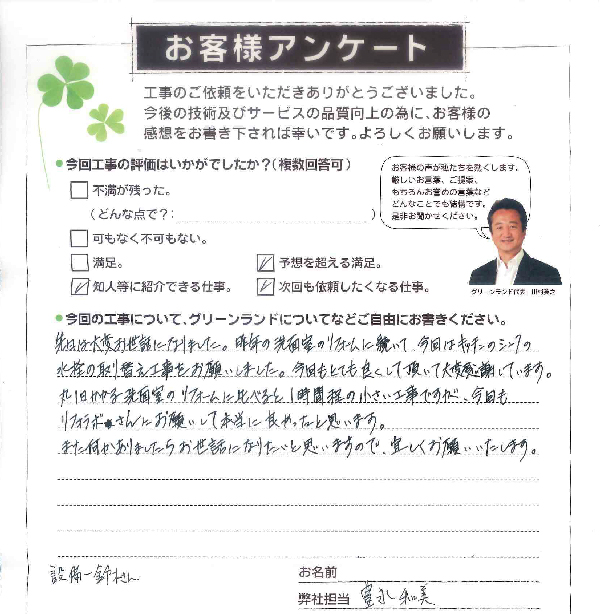 お客様アンケート
工事のご依頼をいただきありがとうございました。
今後の技術及びサービスの品質向上の為に、お客様の
感想をお書き下されば幸いです。よろしくお願いします。
●今回工事の評価はいかがでしたか?(複数回答可)
不満が残った。
(どんな点で?: )
可もなく不可もない。
満足。
予想を超える満足。
知人等に紹介できる仕事。
次回も依頼したくなる仕事。
お客様の声が私たちを熱くします。
厳しいお言葉、ご提案、
もちろんお誉めの言葉など
どんなことでも結構です。
是非お聞かせください。
グリーンランド代表
●今回の工事について、グリーンランドについてなどご自由にお書きください。
先日は大変お世話になりました。昨年の洗面室のリフォームに続いて、今回はキッチンのシンクの
水栓の取り替え工事をお願いしました。今回もとても良くして頂いて大変感謝しています。
丸1日かかる洗面室のリフォームに比べると1時間程の小さい工事ですが、今回も
リフォラボさんにお願いして本当に良かったと思います。
また何かありましたらお世話になりたいと思いますので、宜しくお願いいたします。
設備一鈴木さん
お名前
弊社担当 富永 和美